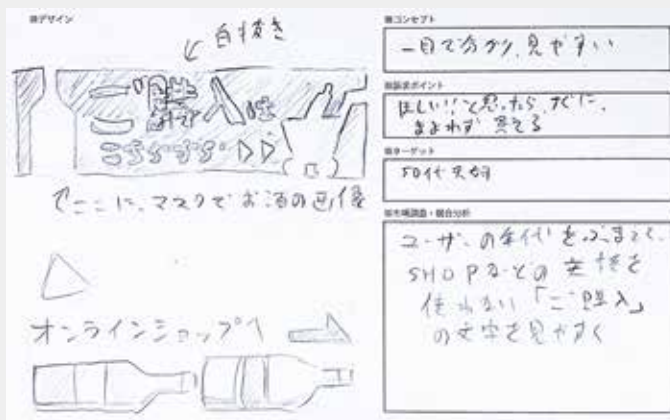 ■デザイン
白抜き
ご購入は
こちらから ▷▷
ここに、マスクでお酒の画像
オンラインショップへ
■コンセプト
一目で分かり、見やすい
■訴求ポイント
ほしい!!と思ったら、すぐに、
まよわず 買える
■ターゲット
50代夫婦
■市場調査・競合分析
ユーザーの年代をふまえて、
SHOPなどの文字を
使わない「ご購入」
の文字を見やすく